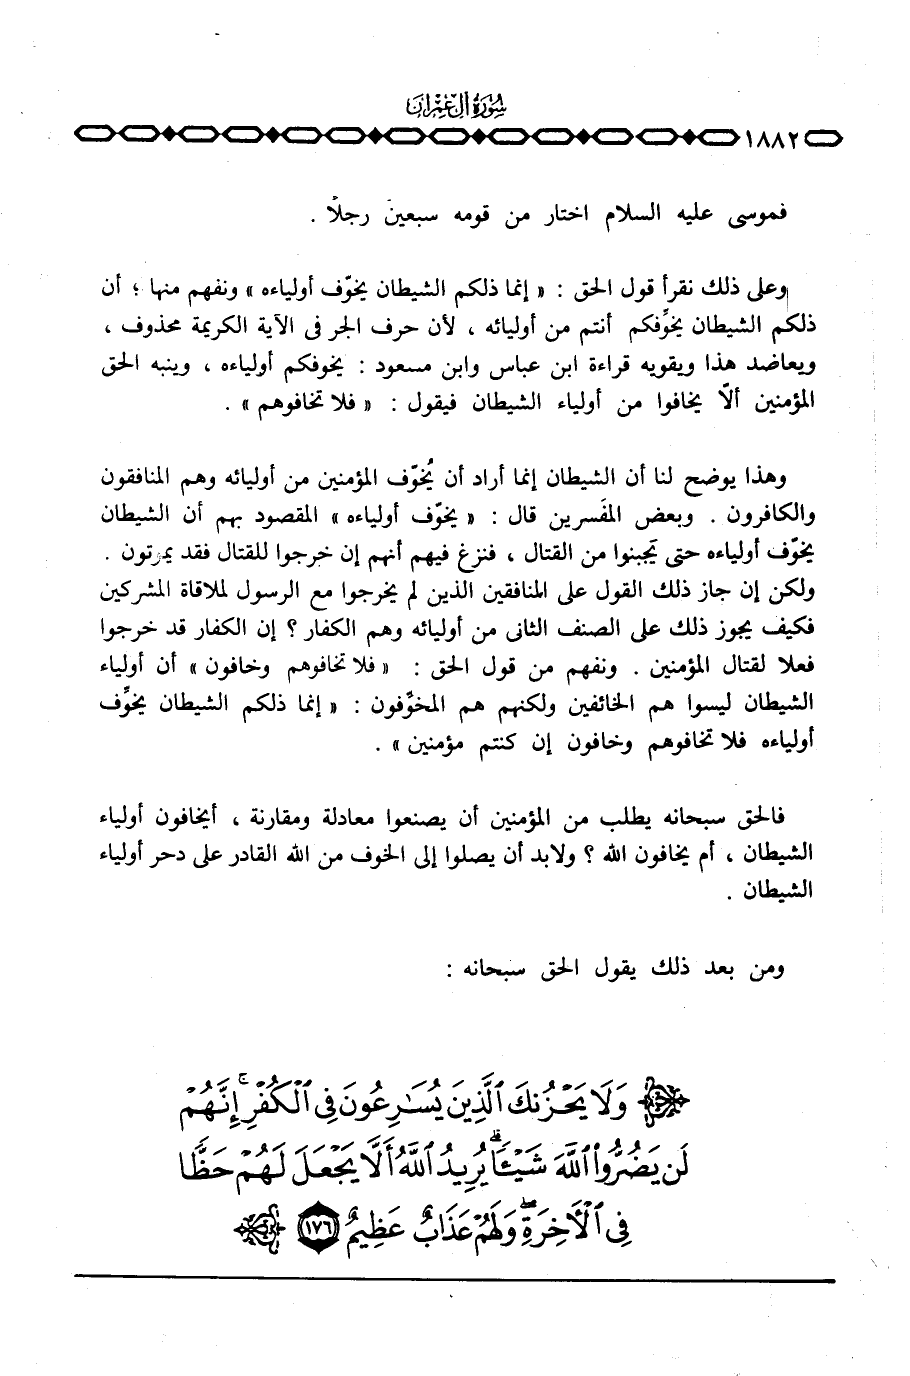 سورة آل عمران
١٨٨٢
فموسى عليه السلام اختار من قومه سبعين رجلاً .
وعلى ذلك نقرأ قول الحق : « إنما ذلكم الشيطان يخوّف أولياءه » ونفهم منها ؛ أن
ذلكم الشيطان يخوِّفكم أنتم من أوليائه ، لأن حرف الجر فى الآية الكريمة محذوف ،
ويعاضد هذا ويقويه قراءة ابن عباس وابن مسعود : يخوفكم أولياءه ، وينبه الحق
المؤمنين ألاّ يخافوا من أولياء الشيطان فيقول : « فلا تخافوهم » .
وهذا يوضح لنا أن الشيطان إنما أراد أن يُخوّف المؤمنين من أوليائه وهم المنافقون
والكافرون . وبعض المفسرين قال : « يخوّف أولياءه » المقصود بهم أن الشيطان
يخوّف أولياءه حتى يَجبنوا من القتال ، فنزغ فيهم أنهم إن خرجوا للقتال فقد يموتون .
ولكن إن جاز ذلك القول على المنافقين الذين لم يخرجوا مع الرسول لملاقاة المشركين
فكيف يجوز ذلك على الصنف الثانى من أوليائه وهم الكفار ؟ إن الكفار قد خرجوا
فعلا لقتال المؤمنين . ونفهم من قول الحق : « فلا تخافوهم وخافون » أن أولياء
الشيطان ليسوا هم الخائفين ولكنهم هم المخوِّفون : « إنما ذلكم الشيطان يخوِّف
أولياءه فلا تخافوهم وخافون إن كنتم مؤمنين » .
فالحق سبحانه يطلب من المؤمنين أن يصنعوا معادلة ومقارنة ، أيخافون أولياء
الشيطان ، أم يخافون الله ؟ ولابد أن يصلوا إلى الخوف من الله القادر على دحر أولياء
الشيطان .
ومن بعد ذلك يقول الحق سبحانه :
وَلَا يَحْزُنكَ ٱلَّذِينَ يُسَٰرِعُونَ فِى ٱلْكُفْرِ ۚ إِنَّهُمْ
لَن يَضُرُّوا۟ ٱللَّهَ شَيْـًٔا ۗ يُرِيدُ ٱللَّهُ أَلَّا يَجْعَلَ لَهُمْ حَظًّا
فِى ٱلْـَٔاخِرَةِ ۖ وَلَهُمْ عَذَابٌ عَظِيمٌ ١٧٦